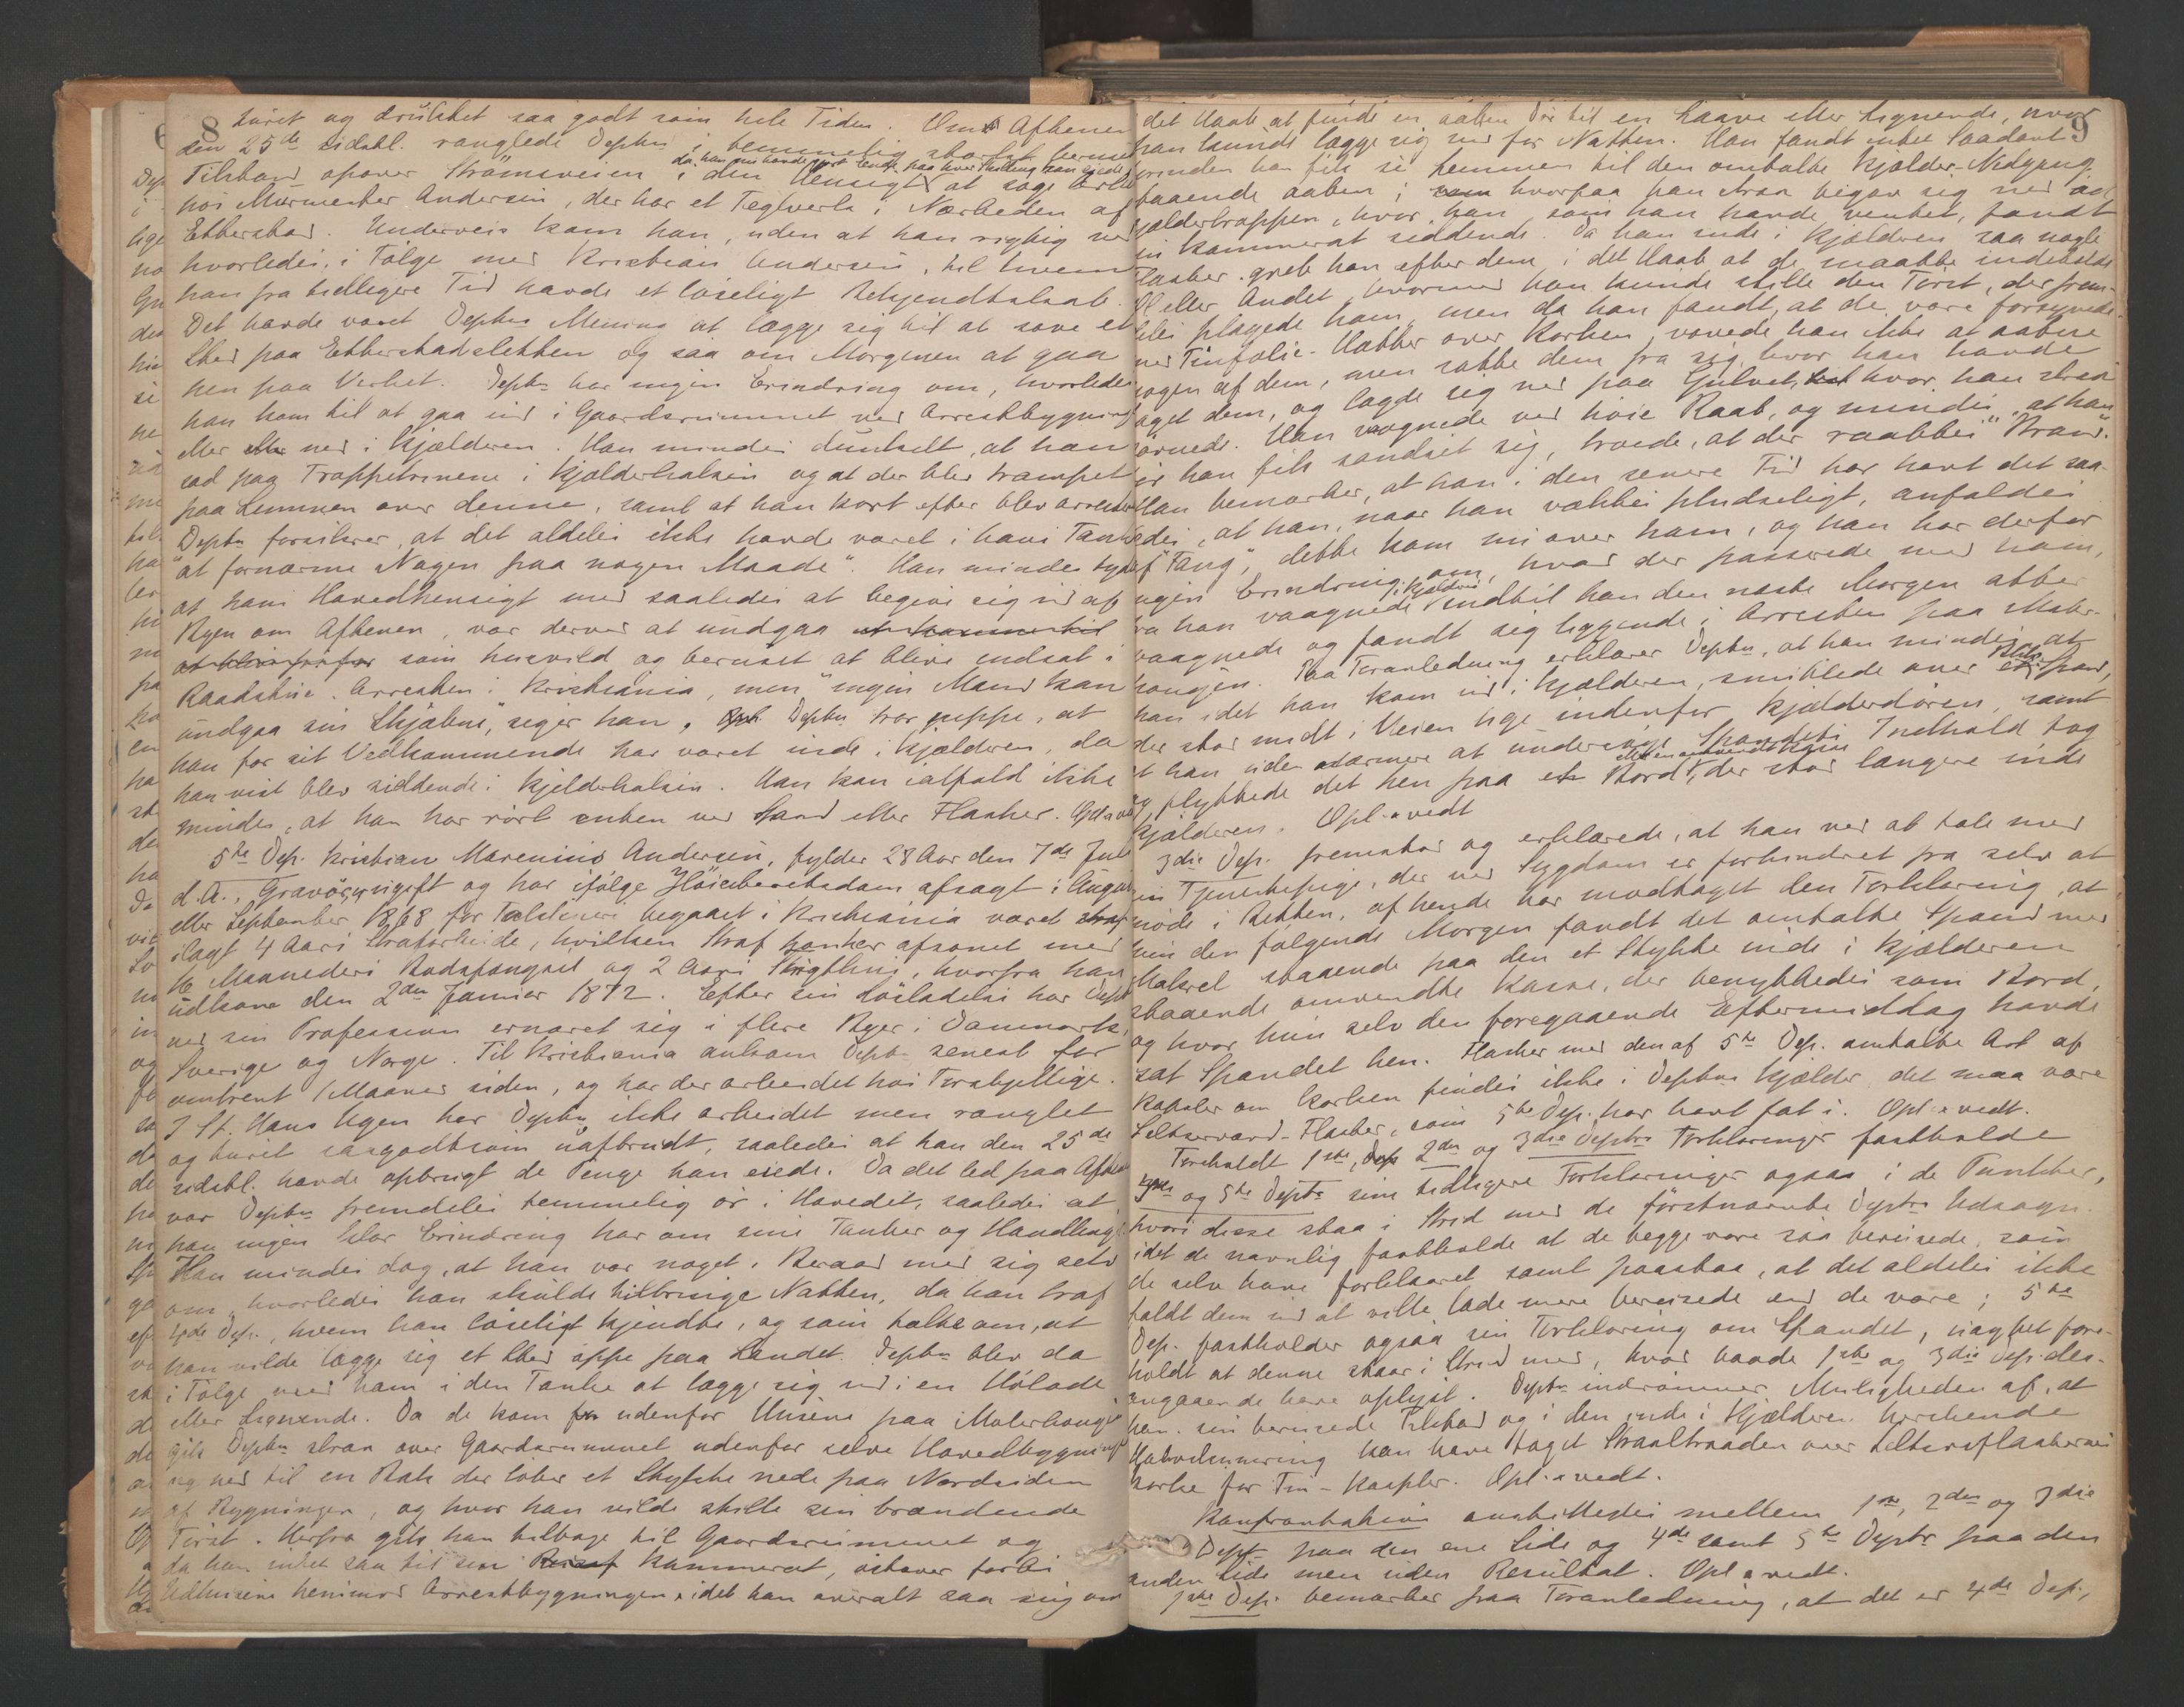 8
turet og drukket saa godt som hele Tiden. Om Aftenen
den 25de sidstl. ranglede Depten i temmelig stærkt beruset
Tilstand opover Strømsveien i den Hensigt at søge Arbeide
hos Murmester Andersen, der har et Teglverk i Nærheden af
Etterstad. Underveis kom han, uden at han rigtig ved
hvorledes, i Følge med Kristian Andersen, til hvem
han fra tidligere Tid havde et løseligt Bekjendtskab.
Det havde været Deptens Mening at lægge sig til at sove et
Sted paa Etterstadsletten og saa om Morgenen at gaa
hen paa Verket. Depten har ingen Erindring om, hvorledes
han kom til at gaa ind i Gaardsrummet ved Arrestbygningen
eller ned i Kjælderen. Han mindes dunkelt, at han
sad paa Trappetrinene i Kjælderhalsen og at der blev trampet
paa Lemmen over denne, samt at han kort efter blev arresteret
Depten forsikrer, at det aldeles ikke havde været i hans Tanke
"at fornærme Nogen paa nogen Maade". Han mindes
at hans Hovedhensigt med saaledes at begive sig ud af
Byen om Aftenen, var derved at undgaa
som husvild og beruset at blive indsat i
Raadstue-Arresten i Kristiania, men "ingen Mand kan
undgaa sin Skjæbne", siger han. Depten tror neppe, at
han for sit Vedkommende har været inde i Kjælderen, da
han vist blev siddende i Kjelderhalsen. Han kan ialfald ikke
mindes, at han har rørt enten ved Spand eller Flasker.
5te Dep. Kristian Marenius Andersen, fylder 28 Aar den 7de Juli
d.A., Gravør, ugift og har ifølge Høiesteretsdom afsagt i August
eller September 1868 for begaaet i Kristiania været
ilagt 4 Aars Strafarbeide, hvilken Straf han har afsonet med
Maaneders Bodsfængsel og 2 Aars, hvorfra han
udkom den 2den Januar 1872. Efter sin Løsladelse har Depten
ved sin Profession ernæret sig i flere Byer i Danmark,
Sverige og Norge. Til Kristiania ankom Depten senest for
omtrent 1 Maaned siden, og har der arbeidet hos
I St. Hans Ugen har Depten ikke arbeidet men ranglet
og turet saagodtsom uafbrudt, saaledes at han den 25de
sidstl. havde opbrugt de Penge han eiede. Da det led paa Aftenen
var Depten fremdeles temmelig ør i Hovedet, saaledes at
han ingen klar Erindring har om sine Tanker og Handlinger
Han mindes dog, at han var noget i Beraad med sig selv
om, hvorledes han skulde tilbringe Natten, da han traf
4de Dep., hvem han løseligt kjendte, og som talte om, at
han vilde lægge sig et Sted oppe paa Landet. Depten blev da
i Følge med ham i den Tanke at lægge sig ind i en Hølade
eller Lignende. Da de kom udenfor Husene paa Møterhougen
gik Depten strax over Gaardsrummet udenfor selve Hovedbygningen
og ned til en Bæk der løber et Stykke nede paa Nordsiden
af Bygningen, og hvor han vilde stille sin brændende
Tørst. Herfra gik han tilbage til Gaardsrummet og
da han intet saa til sin Kammerat, østover forbi
Udhusene henimod Arrestbygningen, idet han overalt saa sig om
9
det Haab at finde en aaben Dør til en Laave eller Lignende, hvor
han kunde lægge sig ind for Natten. Han fandt intet Saadant
han fik se Lemmen til den omtalte Kjælder-Nedgang
staaende aaben; hvorpaa han strax begav sig ned ad
Kjældertrappen, hvor han, som han havde ventet, fandt
sin Kammerat siddende. Da han inde i Kjælderen saa nogle
Flasker greb han efter dem, i det Haab at de maatte indeholde
Øl eller Andet, hvormed han kunde stille den Tørst, der frem-
deles plagede ham, men da han fandt, at de vare forsynede
med Tinfolie-Hætter over Korken, vovede han ikke at aabne
nogen af dem, men satte dem fra sig, hvor han havde
taget dem, og lagde sig ned paa Gulvet, hvor han strax
sovnede. Han vaagnede ved høie Raab, og mindes, at han
før han fik sandset sig, troede, at der raabtes "Brand".
Han bemærker, at han i den senere Tid har havt det saa-
ledes, at han, naar han vækkes pludseligt, anfaldes
af "Fang", dette kom nu over ham, og han har derfor
ingen Erindring om, hvad der passerede med ham,
fra han vaagnede i Kjælderen indtil han den næste Morgen atter
vaagnede og fandt sig liggende i Arresten paa Møter-
hougen. Paa Foranledning erklærer Depten, at han mindes, at
han idet han kom ind i Kjælderen, snublede over Spand,
der stod midt i Veien lige indenfor Kjælderdøren, samt
at han uden nærmere at undersøge Spandets Indhold tog
og flyttede det hen paa et Bord, der stod længere inde
i Kjælderen. Opl. & vedt
3die Dep. fremstod og erklærede, at han ved at tale med
sin Tjenestepige, der ved Sygdom er forhindret fra selv at
møde i Retten, af hende har modtaget den Forklaring, at
hun den følgende Morgen fandt det omtalte Spand med
Makrel staaende paa den et Stykke inde i Kjælderen
staaende omvendte Kasse, der benyttedes som Bord,
og hvor hun selv den foregaaende Eftermiddag havde
sat Spandet hen. Flasker med den af 5te Dep. omtalte Art af
Kapsler om Korken findes ikke i Deptens Kjælder, det maa være
Seltservand-Flasker, som 5te Dep. har havt fat i. Opl. & vedt.
Foreholdt 1ste, 2den og 3die Deptrs Forklaringer fastholde
4de og 5te Deptr sine tidligere Forklaringer ogsaa i de Punkter,
hvori disse staa i Strid med de førstnævnte Deptrs Udsagn
idet de navnlig fastholde at de begge vare saa berusede, som
de selv have forklaret samt paastaa, at det aldeles ikke
faldt dem ind at ville lade mere berusede end de vare; 5te
Dep. fastholder ogsaa sin Forklaring om Spandet, uagtet fore-
holdt at denne staar i Strid med, hvad baade 1ste og 3die Dep. des-
angaaende have oplyst. Depten indrømmer Muligheden af, at
han i sin berusede Tilstand og i den inde i Kjælderen herskende
Halvdunkelhed kan have taget Staaltraaden over Seltersflaskernes
Korke for Tin-Kapsler. Opl. & vedt.
Konfrontation anstilledes mellem 1ste, 2den og 3die
Dept. paa den ene Side og 4de samt 5te Deptr paa den
anden Side men uden Resultat. Opl. & vedt.
1ste Dep. bemærker paa Foranledning, at det er 4de Dep.,